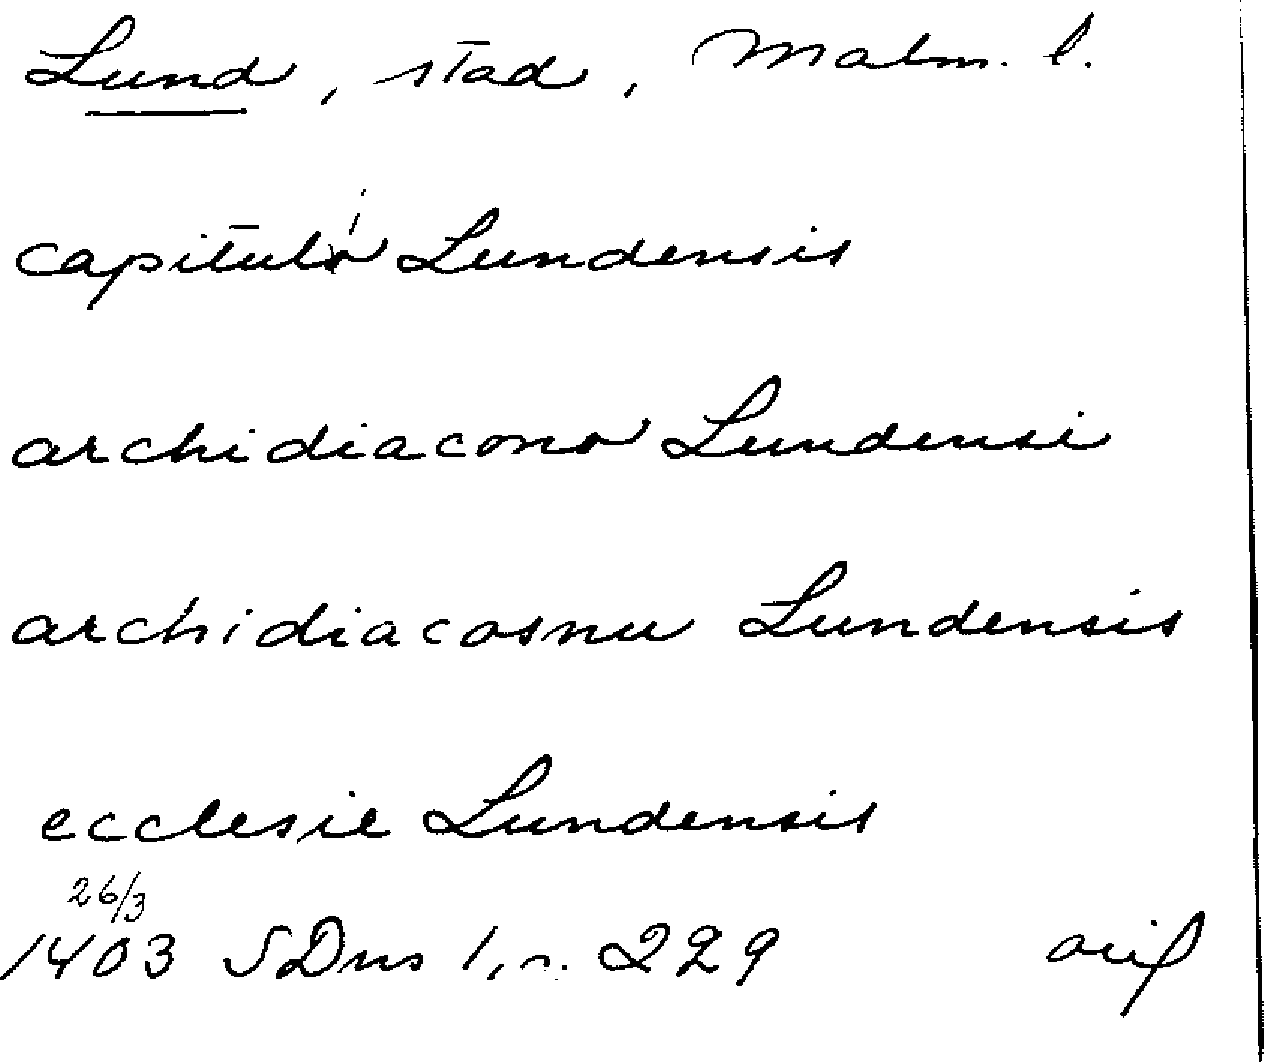 Lund, stad, Malm. l.
capituli Lundensis
archidiacono Lundensi
archidiacosnu Lundensis
ecclesie Lundensis
26/3
1403 SDns 1, n. 229